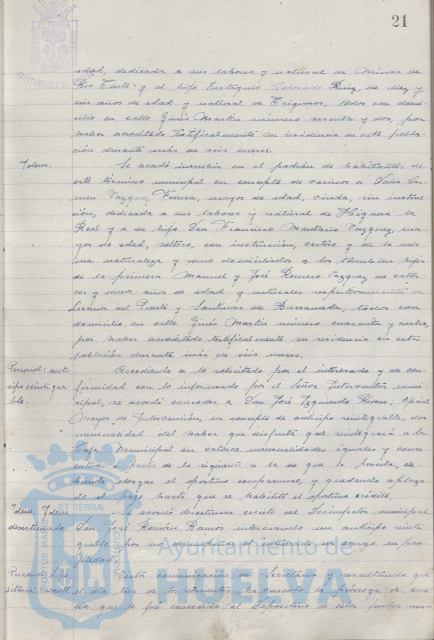 21
edad, dedicada a sus labores y natural de Minas de
Rio Tinto y al hijo Eustiquio Colorado Ruiz, de diez y
seis años de edad y natural de Trigueros, todos con domi-
cilio en calle Ginés Martin número sesenta y dos, por
haber acreditado testificalmente su residencia en esta pobla-
ción durante más de seis meses.
Idem. Se acordó inscribir en el padrón de habitantes de
este término municipal en concepto de vecinos a Doña Car-
men Vazquez, mayor de edad, viuda, sin instruc-
ción, dedicada a sus labores y natural de Higuera la
Real y a su hijo Don Francisco Vazquez, ma-
yor de edad, soltero, con instrucción, y de la mis-
ma naturaleza y como domiciliados a los también hijos
de la primera Manuel y José Romero Vazquez de cator-
ce y nueve años de edad y naturales respectivamente de
Lucena del Puerto y Sanlucar de Barrameda, todos con
domicilio en calle Ginés Martin número cuarenta y cuatro,
por haber acreditado testificalmente su residencia en esta
población durante más de seis meses.
Personal: anti-
cipo reintegra-
ble. Accediendo a lo solicitado por el interesado y de con-
formidad con lo informado por el Señor Interventor muni-
cipal, se acordó conceder a Don José Izquierdo Rivero, Oficial
Mayor de Intervención, en concepto de anticipo reintegrable, dos
mensualidades del haber que disfruta que reintegrará a la
Caja Municipal en catorce mensualidades iguales y conse-
cutivas a partir de la siguiente a la en que la perciba, de-
biendo otorgar el oportuno compromiso, y quedando aplaza-
do el pago hasta que se habilite el oportuno crédito.
Idem. Idem
desestimado. Se acordó desestimar escrito del municipal
Don José Román Ramos interesando un anticipo reinte-
grable por
piedad.
Personal: Depo-
sitaria vacante. Vista comunicación de Secretaría y resultando que
el día tres de los corrientes ha vencido la prórroga de
que le fué concedida al Depositario de estos fondos mu-
Ayuntamiento de
HUELVA